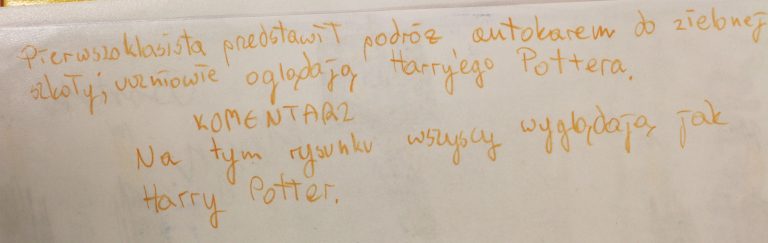 Pierwszoklasista predstawił podróż autokarem do zielonej
szkoły; uczniowie oglądają Harry'ego Pottera.
KOMENTARZ
Na tym rysunku wszyscy wyglądają jak
Harry Potter.